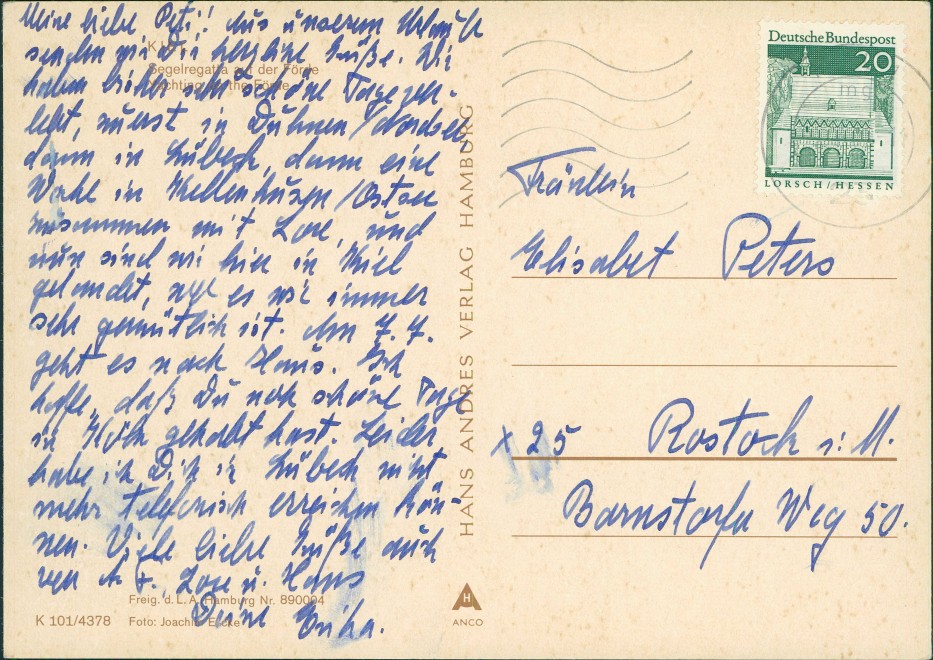 Meine liebe Peti! Aus unserem Urlaub
senden wir Dir herzliche Grüße. Wir
haben bisher sehr schöne Tage ver-
lebt, zuerst in Duhnen/Nordsee
dann in Lübeck, dann eine
Woche in Kellenhusen/Ostsee
zusammen mit Lore, und
nun sind wir hier in Kiel
gelandet, wo es wie immer
sehr gemütlich ist. Am 7. 7.
geht es nach Haus. Ich
hoffe, daß Du noch schöne Tage
in Köln gehabt hast. Leider
habe ich Dich in Lübeck nicht
mehr telefonisch erreichen kön-
nen. Viele liebe Grüße auch
von Lore u. Hans
Deine Erika.
Segelregatta auf der Förde
Yachting the Förde
Freig. d. L. A. Hamburg Nr. 890004
K 101/4378 Foto: Joachim
HANS ANDRES VERLAG HAMBURG
H
ANCO
Deutsche Bundespost
20
LORSCH/HESSEN
Fräulein
Elisabet Peters
x 25 Rostock i. M.
Barnstorfer Weg 50.